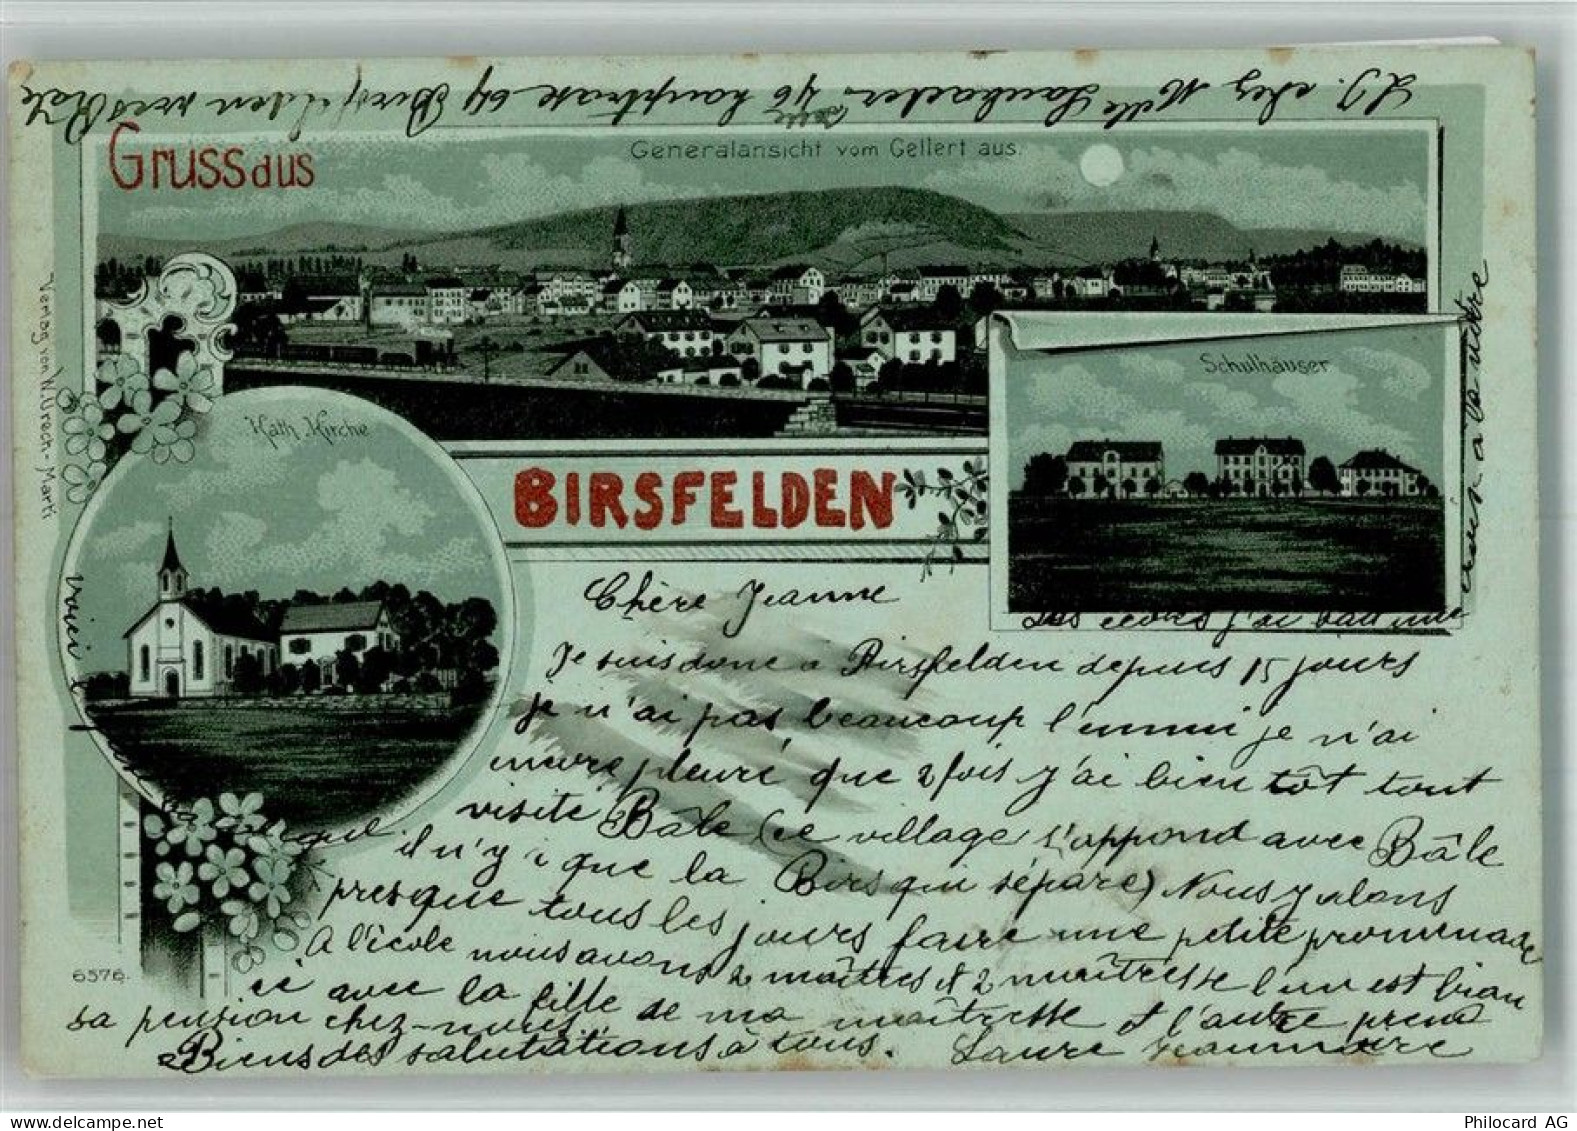 L J. chez Mlle Laubacher 46 hauptrase by Birsfelden
Gruss aus
Generalansicht vom Gellert aus.
Schulhäuser
Kath. Kirche
BIRSFELDEN
Verlag von W. Urech-Marti
Chère Jeanne
Je suis donc a Birsfelden depuis 15 jours
je n'ai pas beaucoup l'ennui je n'ai
pleuré que 2 fois j'ai bien tôt tout
visité Bâle (ce village s'appond avec Bâle
il n'y i que la Birs qui sépare) Nous y alons
presque tous les jours faire une petite promenade
A l'école nous avons 2 maîtres et 2 maîtresse l'un est bien
ici avec la fille de ma maîtresse et l'autre prend
sa pension chez-nous.
Biens des salutations à tous. Laure
voici
j'ai
à l'autre
6576.
Philocard AG